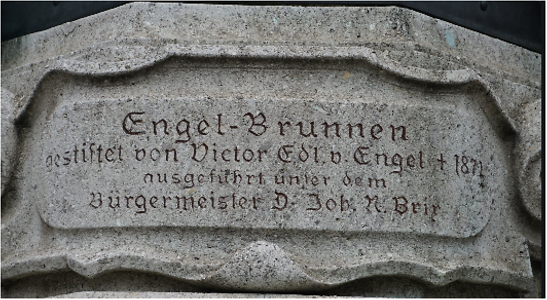 Engel-Brunnen
gestiftet von Victor Edl. v. Engel † 1871
ausgeführt unter dem
Bürgermeister D. Joh. N. Brix